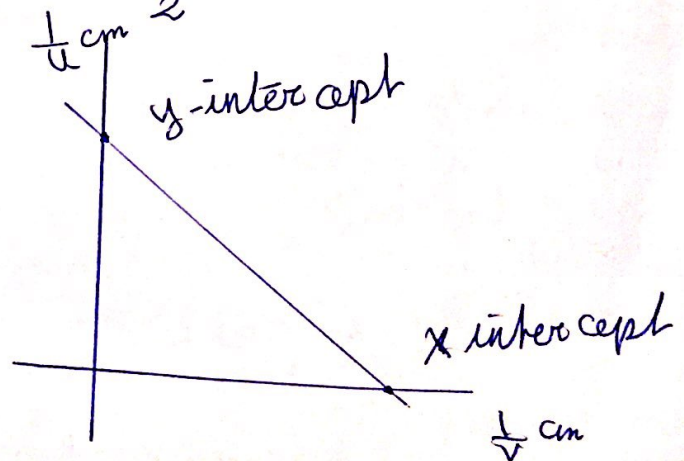 2
1/u cm
y-intercept
x intercept
1/v cm